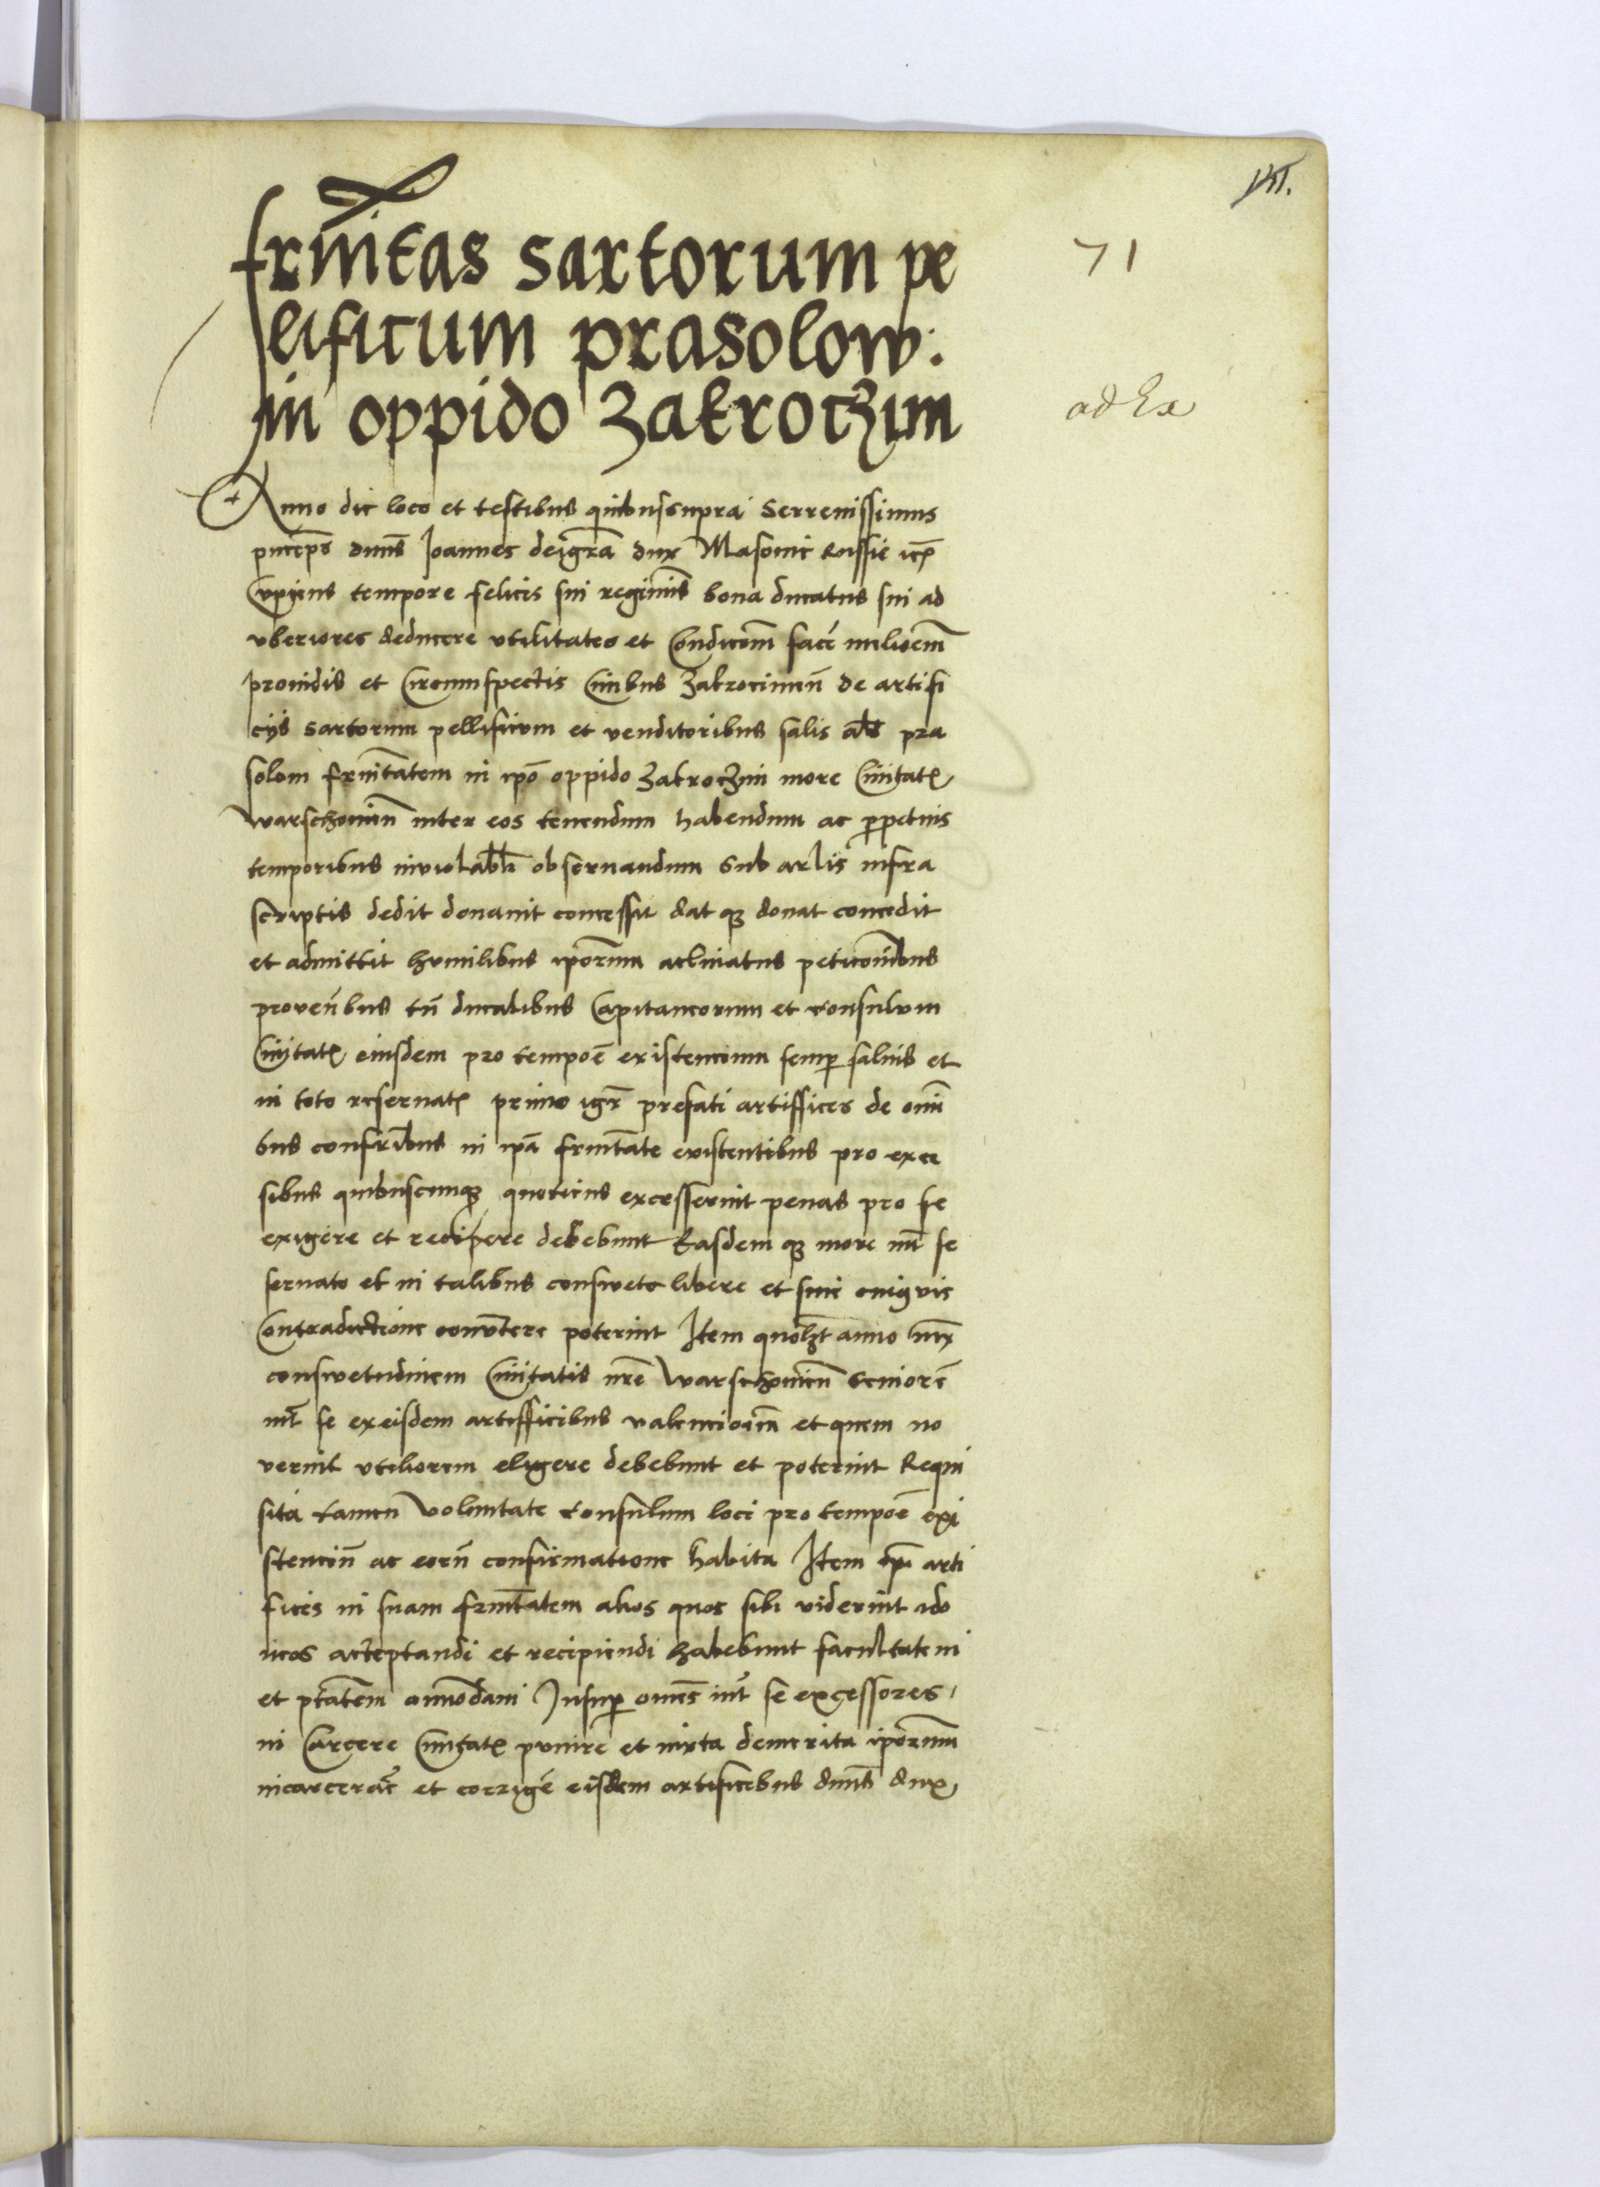 VII.
frnitas sartorum pe
71
lificum prasolow:
in oppido Zakroczim
ad Ex
Anno die loco et testibus quibussupra Serrenissimus
princeps dnus Ioannes deigra dux Masouie Russie
Cupiens tempore felicis sui regiminis bona ducatus sui ad
vberiores deducere vtilitates et Condicom face meliorem
prouidis et Circumspectis Ciuibus Zakrocimen de artifi
cijs sartorum pellificum et venditoribus salis als pra
solom frnitatem in ipo oppido Zakroczim more Ciuitat
warschouien inter eos tenendum habendum ac ppetuis
temporibus inuiolabli obseruandum sub arlis infra
scriptis dedit donauit concessit dat q donat concedit
et admittit humilibus iporum acliuatus peticonibus
prouen bus tn ducalibus Capitaneorum et Consulum
Ciuitat eiusdem pro tempoe existencium semp saluis et
in toto reseruat primo igr prefati artiffices de omi
bus confribus in ipa frnitate existentibus pro exce
sibus quibuscunq quociens excesserint penas pro se
exigere et recipere debebunt Easdem q more int se
seruato et in talibus consweto libere et sine cuiqvis
Contradictione conutere poterint Item quolzt anno
conswetudinem Ciuitatis nre warschouien seniore
int se exeisdem artifficibus valencioem et quem no
uerint vtiliorem eligere debebunt et poterint Requi
sita tamen voluntate Consulum loci pro tempoe exi
stencin ac eorn confirmatione habita Item ipi arti
fices in suam frnitatem alios quos sibi viderint ido
neos acceptandi et recipiendi habebunt facultatem
et ptatem omodam Insup omes int se excessores
in Carcere Ciuitat punire et iuxta demerita iporum
incarcerac et corrige eisdem artificibus dnus dux